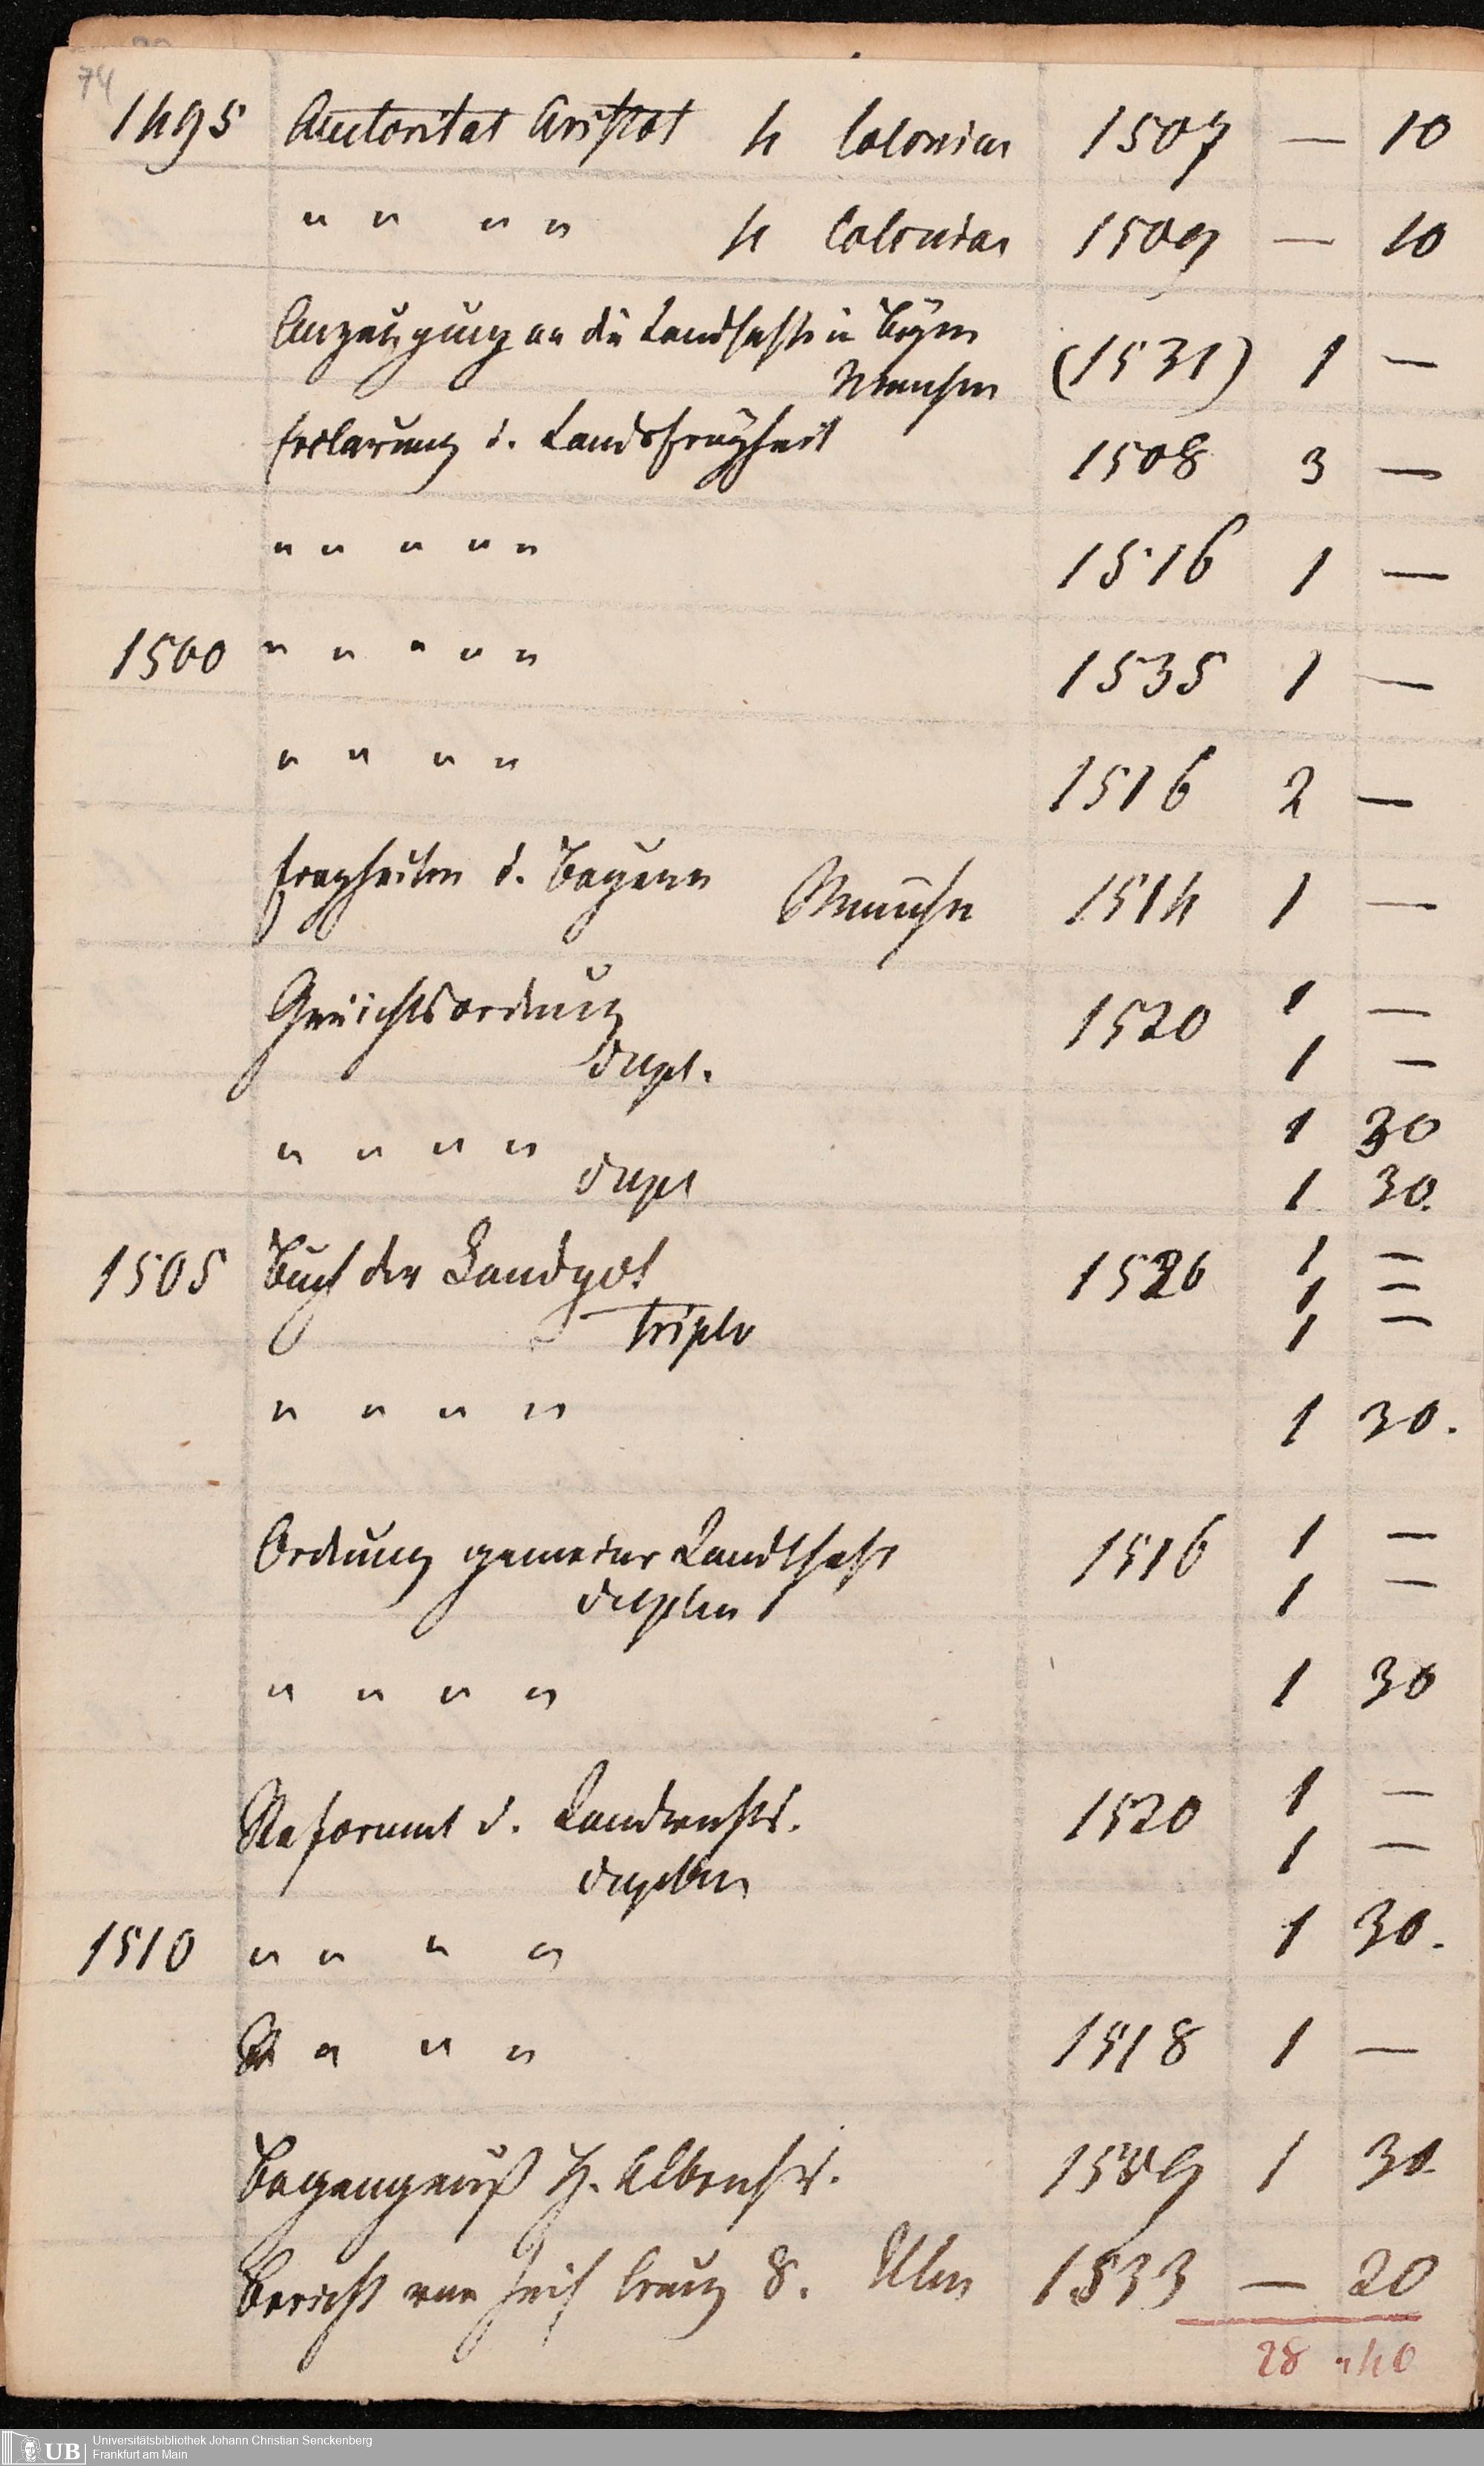 74
1495 Autoritat Aristot 4 Coloniae 1507 — 10
" " " " 4 Coloniae 1509 — 10
Anzaygung an die Landschafft in Bayrn
Munchen (1531) 1 —
Erclarung d. Landsfreyheit 1508 3 —
" " " " " 1516 1 —
1500 " " " " " 1535 1 —
" " " " 1516 2 —
Freyheiten d. Bayern Munchen 1514 1 —
Gerichtsordnung 1520 1 —
dupl. 1 —
" " " " 1 30
dupl 1 30.
1505 Buch der Landpot 1520 1 —
1 —
triplo 1 —
" " " " 1 30.
Ordnung gemeiner Landschafft 1516 1 —
duplen 1 —
" " " " 1 30
Reformat d. Landrechts. 1520 1 —
duplen 1 —
1510 " " " " 1 30.
" " " " 1518 1 —
Begengnuß H. Albrechts. 1509 1 30
Bericht vom heil Creutz 8. Ulm 1533 — 20
28 " 40
UB
Universitätsbibliothek Johann Christian Senckenberg
Frankfurt am Main